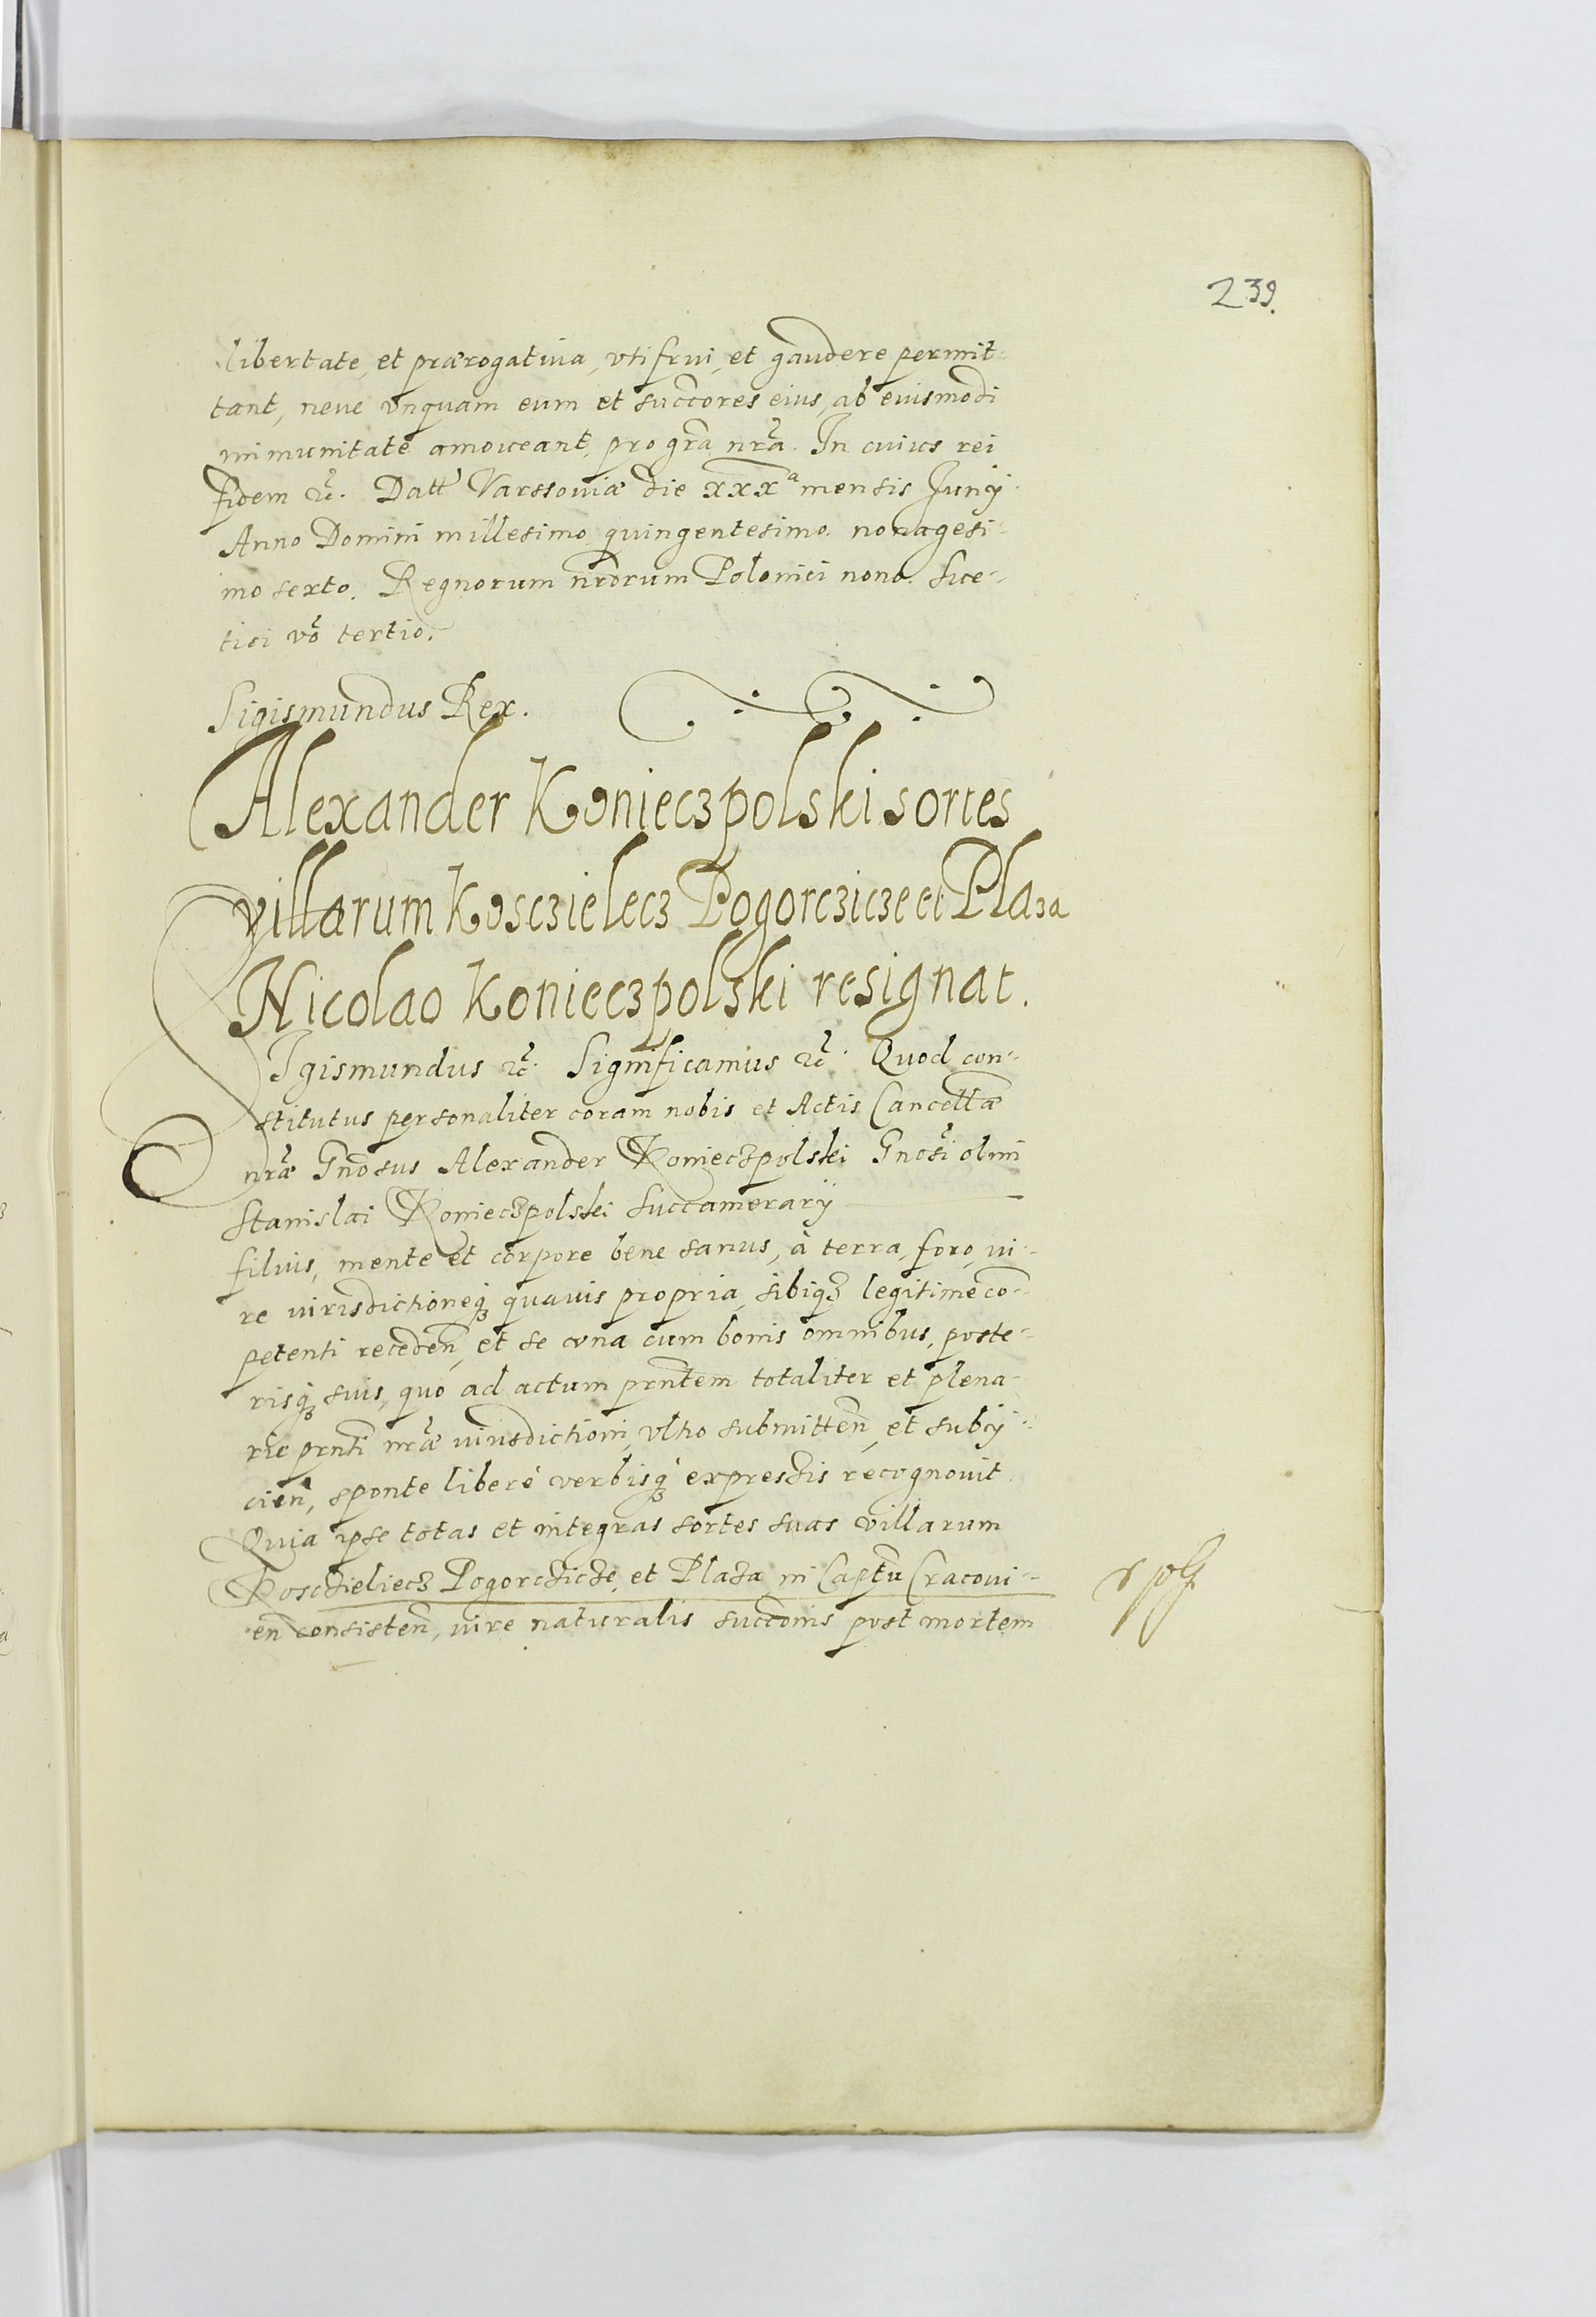 239.
libertate, et prærogatiua, vti frui, et gaudere permit-
tant, neue vnquam eum et succores eius, ab eiusmodi
immunitate amoueant, pro gra nra. In cuius rei
fidem &c. Datt Varssouiæ die xxxa mensis Junij
Anno Domini millesimo quingentesimo nonagesi-
mo sexto. Regnorum nrorum Polonici nono. Sue-
tici vo tertio.
Sigismundus Rex.
Alexander Konieczpolski sortes
villarum Kosczielecz Pogorcziczeet Plaza
Nicolao Konieczpolski resignat.
SIgismundus &c. Significamus &c. Quod con-
stitutus personaliter coram nobis et Actis Cancellæ
nræ Gnosus Alexander Konieczpolski Gnosi olim
Stanislai Konieczpolski Succamerarij
filius, mente et corpore bene sanus, à terra, foro, iu-
re iurisdictioneq; quauis propria, sibiq; legitime co-
petenti receden, et se vna cum bonis omnibus, poste-
risq; suis, quo ad actum prntem totaliter et plena-
rie prnti nræ iurisdictioni, vltro submitten, et subij-
cien, sponte liberè verbisq; expressis recognouit.
Quia ipse totas et integras sortes suas villarum
Kosczieliecz Pogorczicze, et Plaza in Captu Cracoui-
en consisten, iure naturalis succonis post mortem